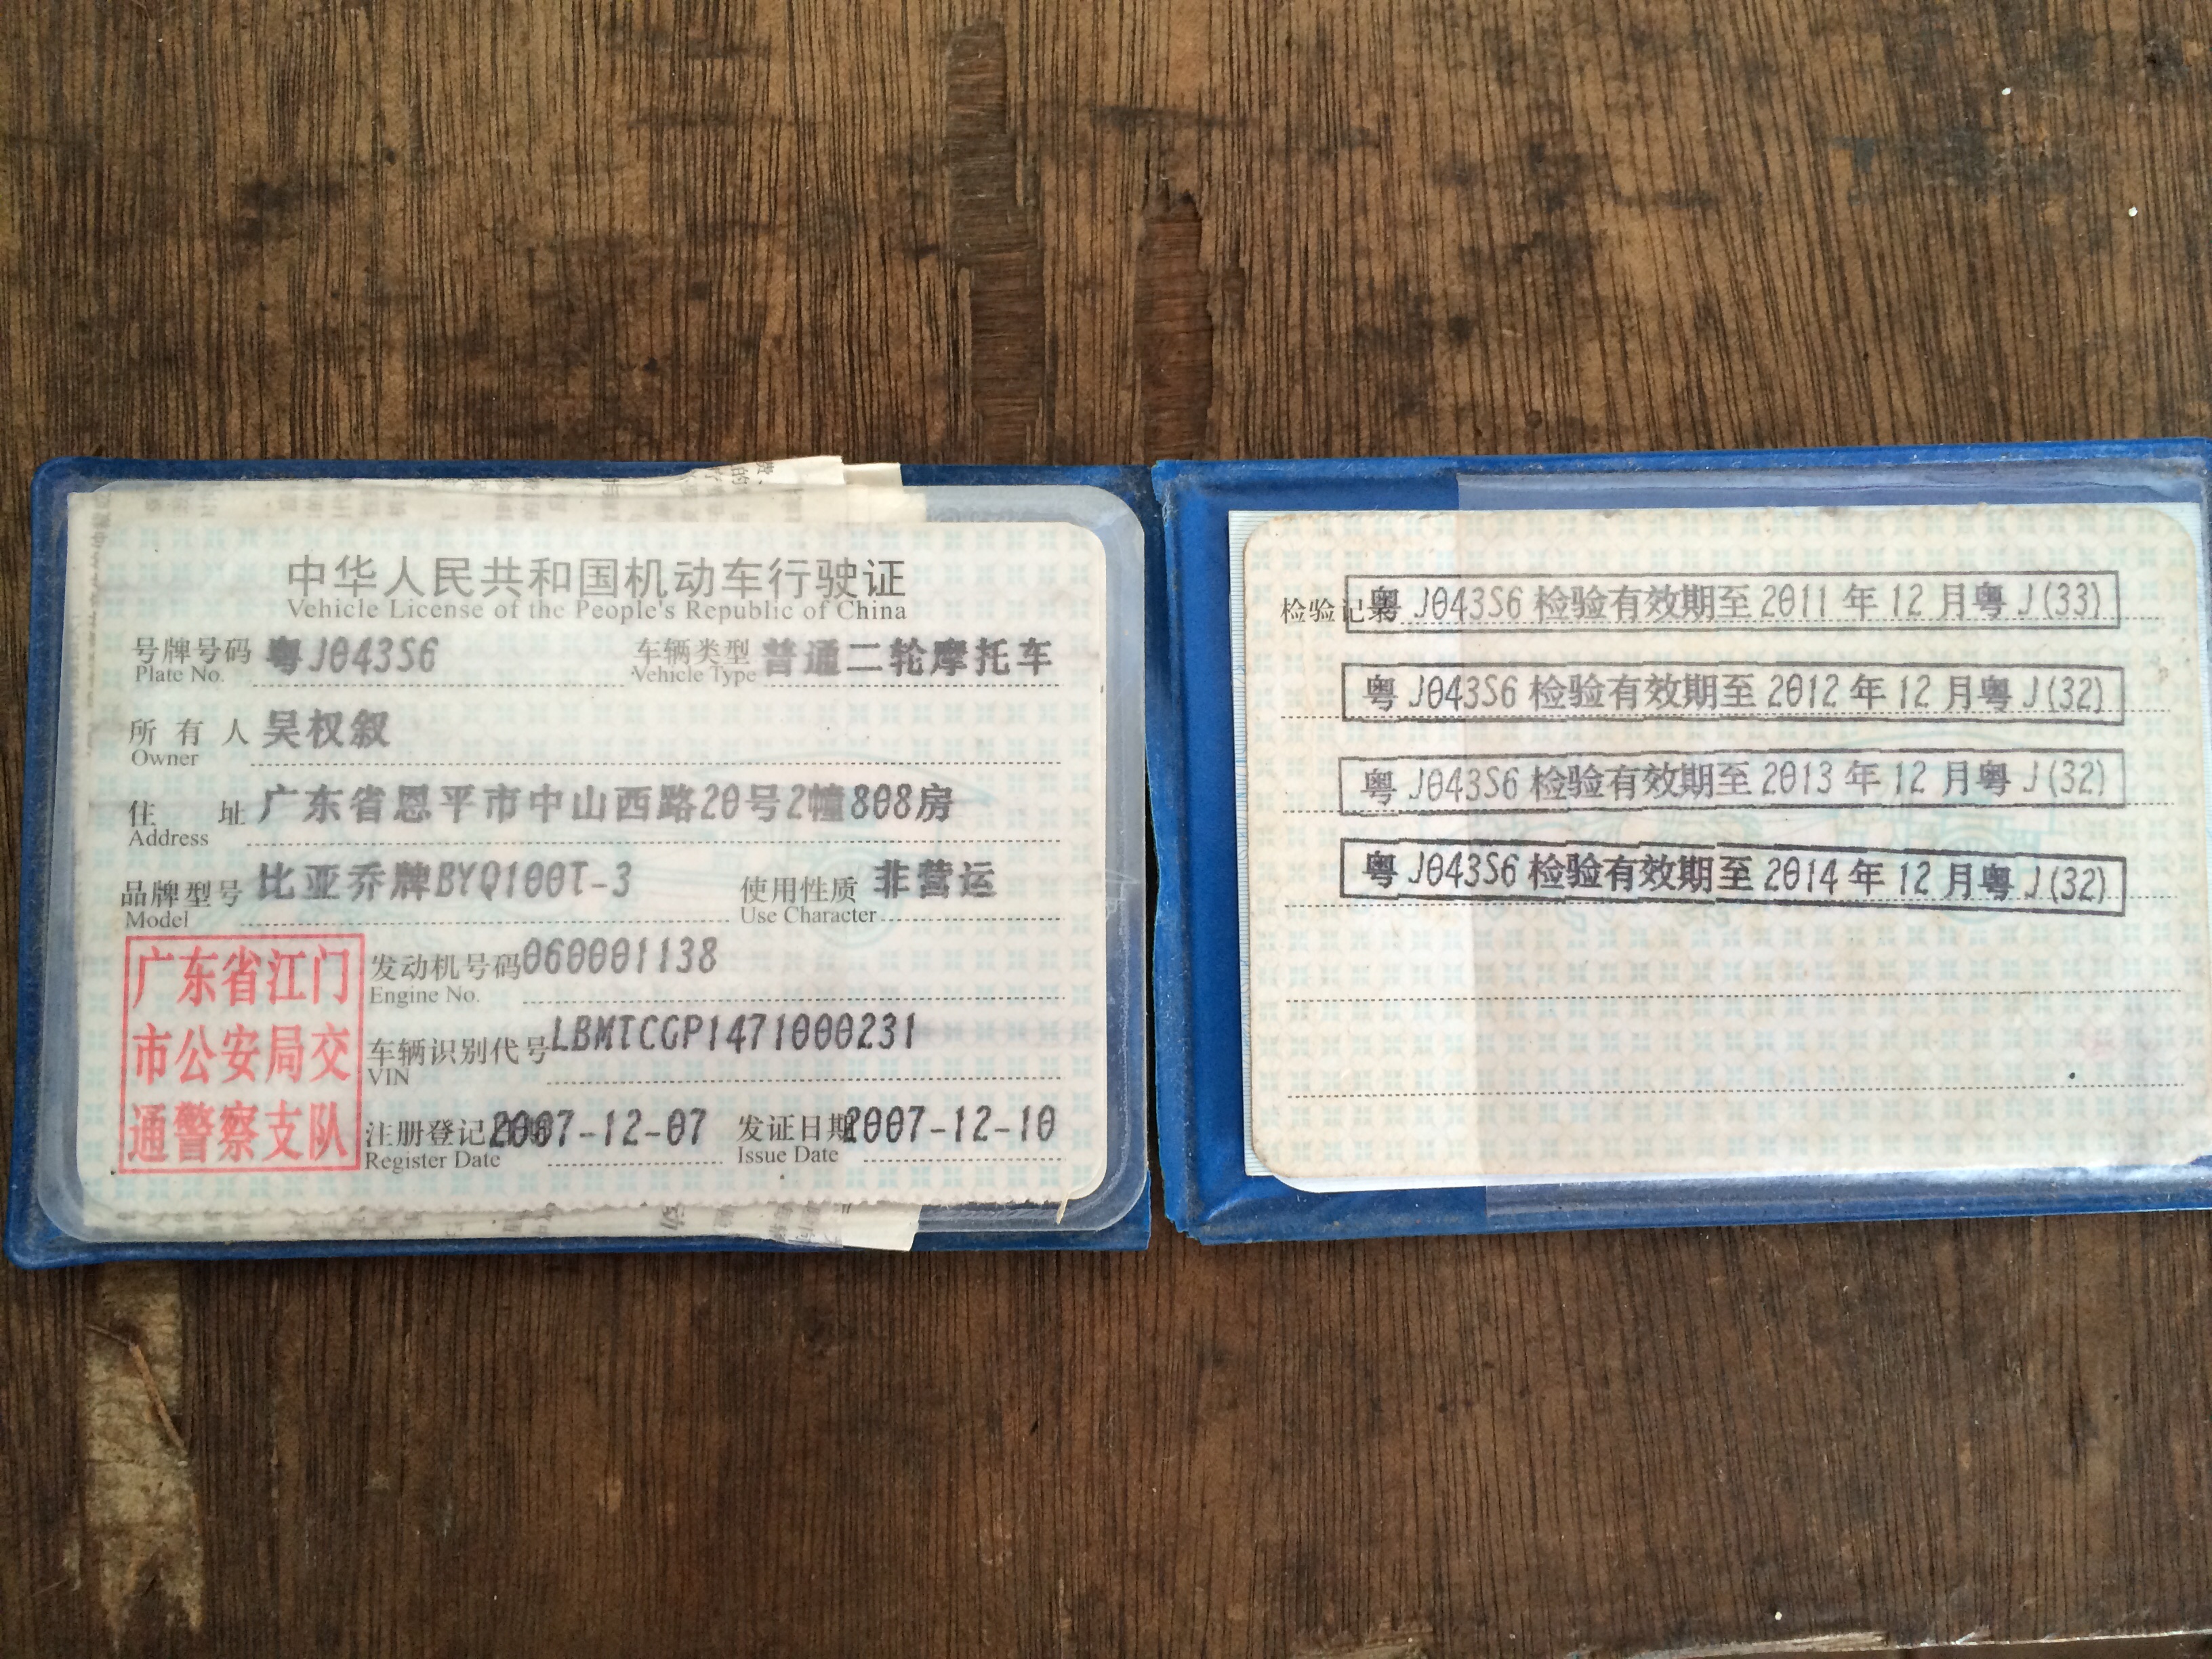 中华人民共和国机动车行驶证
Vehicle License of the People's Republic of China
号牌号码 粤J043S6 车辆类型 普通二轮摩托车
Plate No. Vehicle Type
所有人 吴权叙
Owner
住址 广东省恩平市中山西路20号2幢808房
Address
品牌型号 比亚乔牌BYQ100T-3 使用性质 非营运
Model Use Character
广东省江门
市公安局交
通警察支队
发动机号码 060001138
Engine No.
车辆识别代号 LBMTCGP1471000231
VIN
注册登记日期 2007-12-07 发证日期 2007-12-10
Register Date Issue Date
检验记录 粤J043S6 检验有效期至 2011 年 12 月粤 J(33)
粤J043S6 检验有效期至 2012 年 12 月粤 J(32)
粤J043S6 检验有效期至 2013 年 12 月粤 J(32)
粤J043S6 检验有效期至 2014 年 12 月粤 J(32)